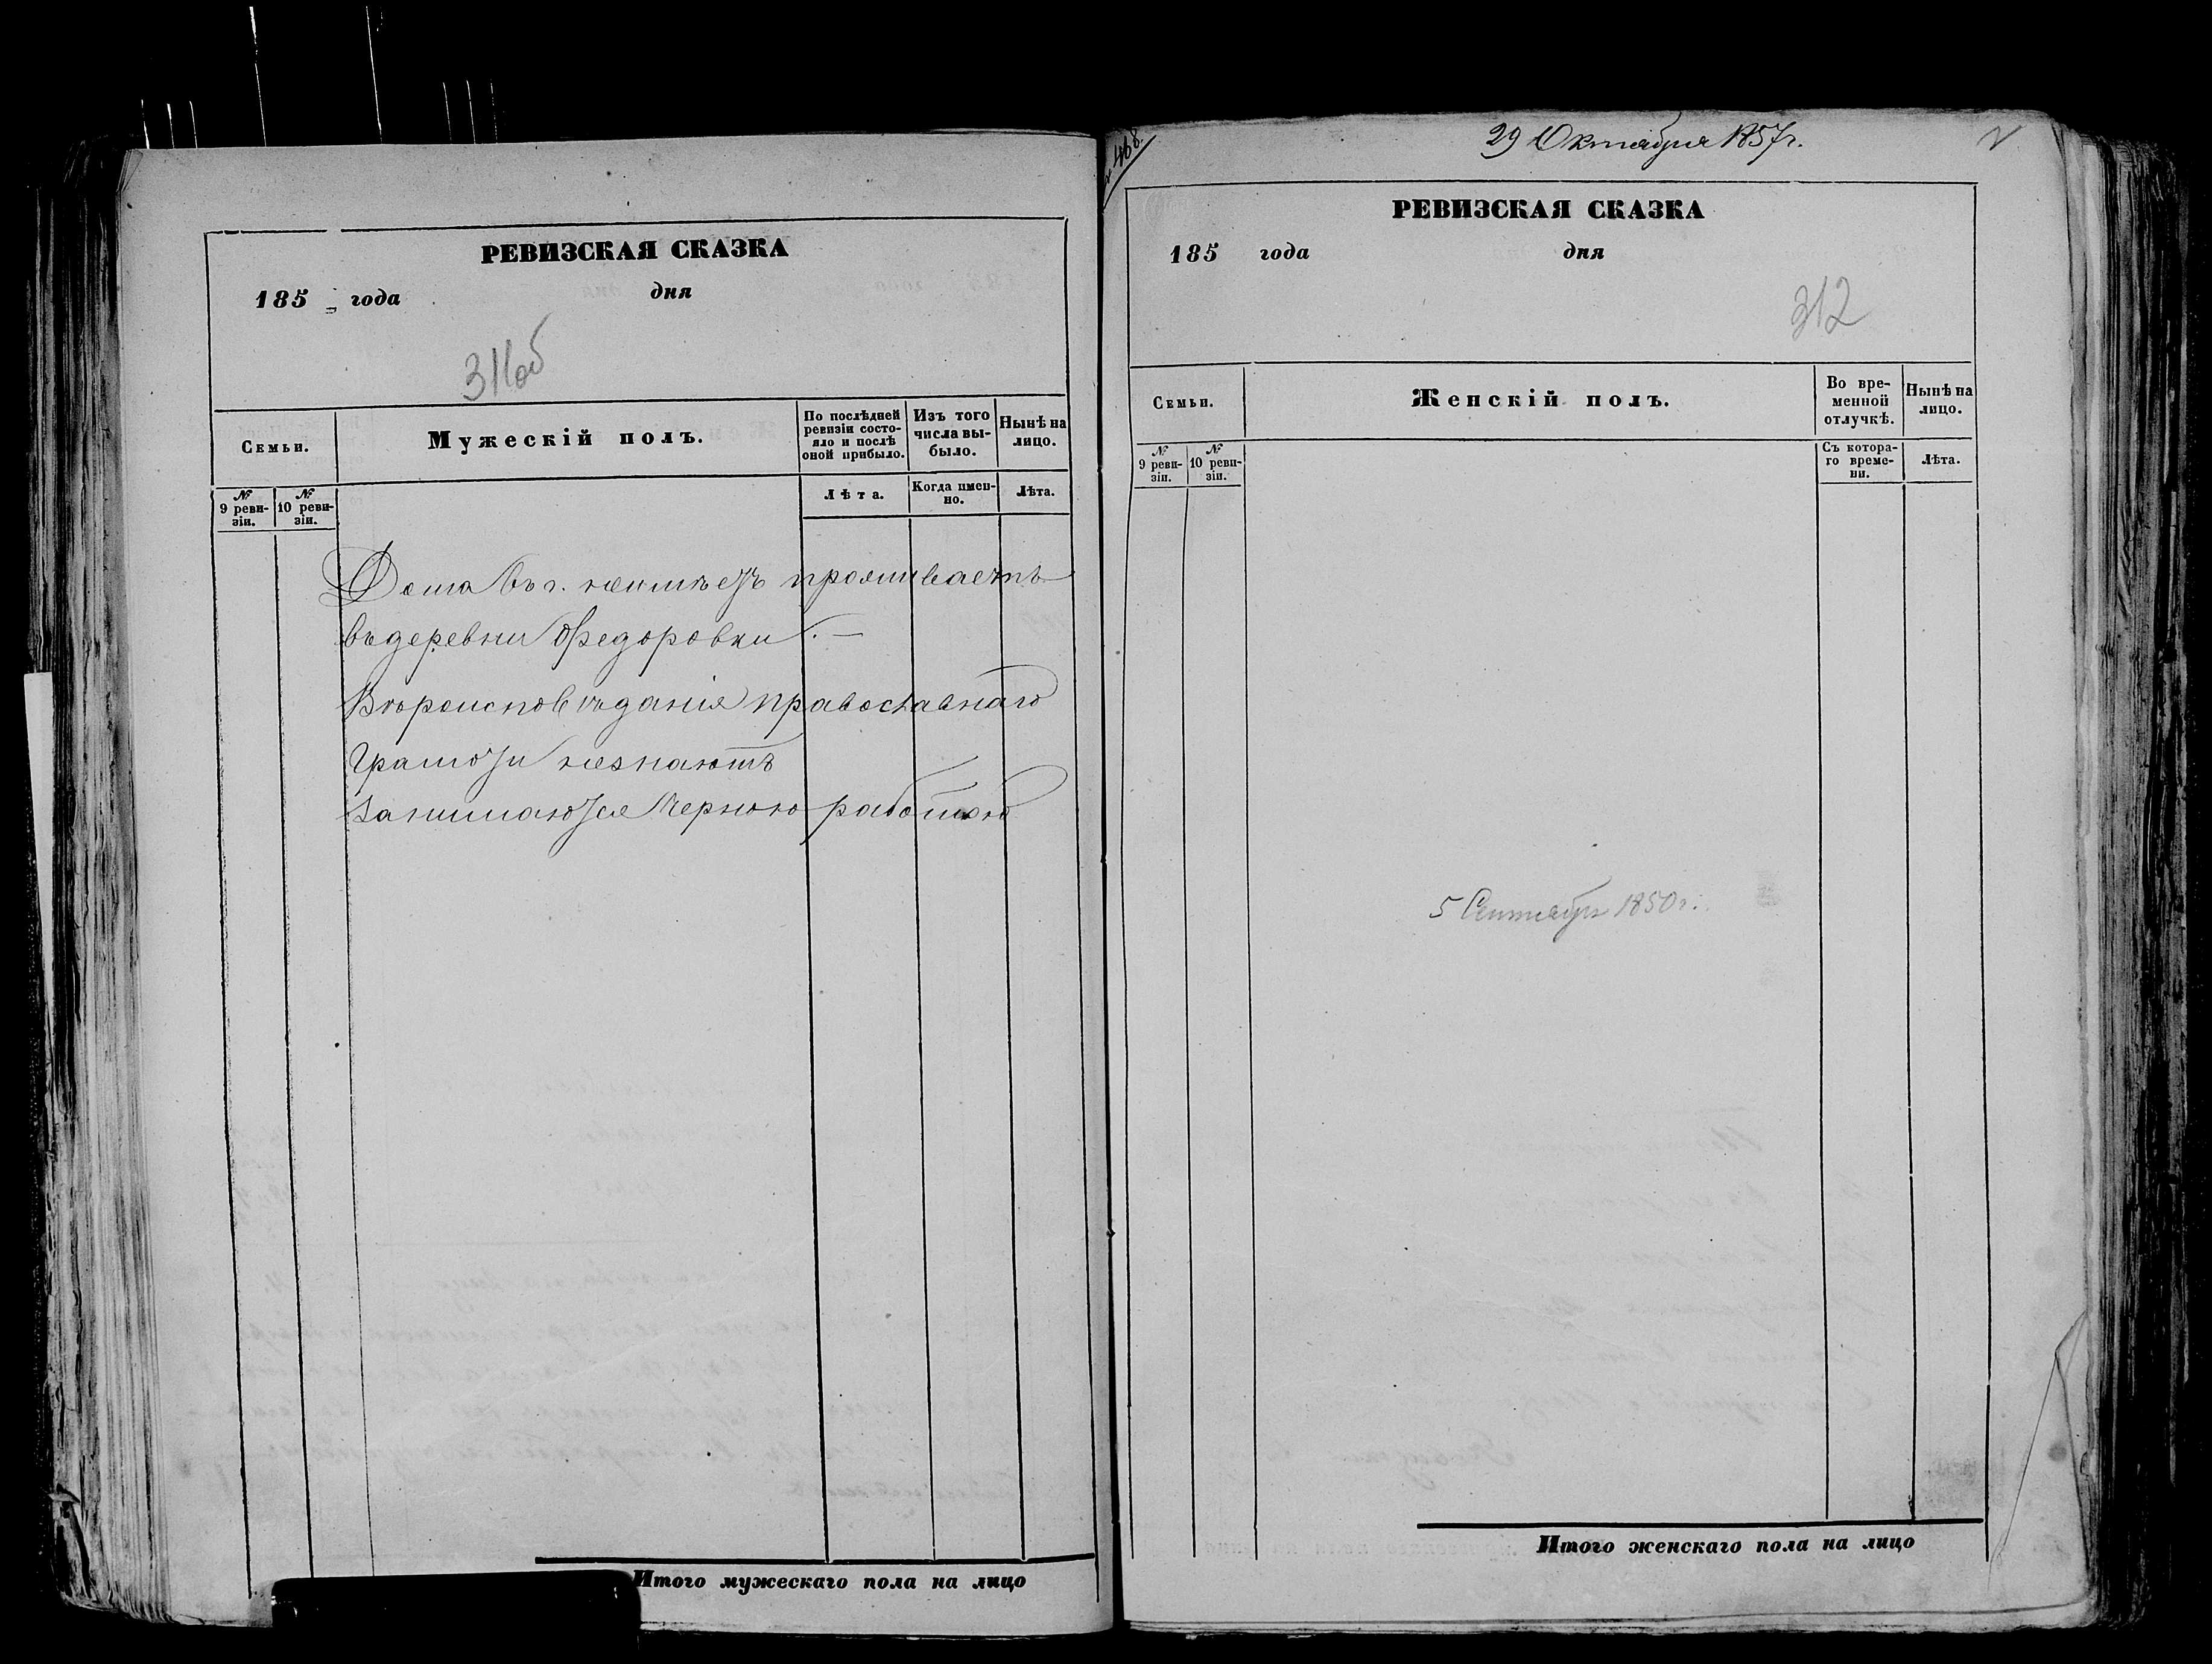 РЕВИЗСКАЯ СКАЗКА
185 года дня
311об
Семьи.
Мужескій полъ.
По послѣдней ревизіи состояло и послѣ оной прибыло.
Изъ того числа выбыло.
Нынѣ на лицо.
№ 9 ревизіи.
№ 10 ревизіи.
Лѣта.
Когда именно.
Лѣта.
Дома въ г. неимѣетъ проживаетъ
въ деревни Федоровки. —
Вѣроисповѣданія православнаго
Грамоти незнаютъ
Занимаются Черною работою
Итого мужескаго пола на лицо
468.
29 Октября 1857 г.
РЕВИЗСКАЯ СКАЗКА
185 года дня
312
Семьи.
Женскій полъ.
Во временной отлучкѣ.
Нынѣ на лицо.
№ 9 ревизіи.
№ 10 ревизіи.
Съ котораго времени.
Лѣта.
5 Сентября 1850 г.
Итого женскаго пола на лицо